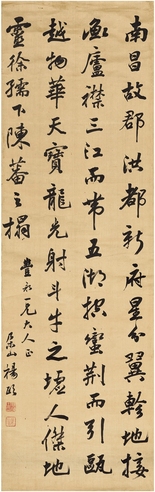 南昌故郡洪都新府星分翼軫地接
衡廬襟三江而帶五湖控蠻荆而引甌
越物華天寶龍光射斗牛之墟人傑地
靈徐孺下陳蕃之榻
豐永一兄大人正